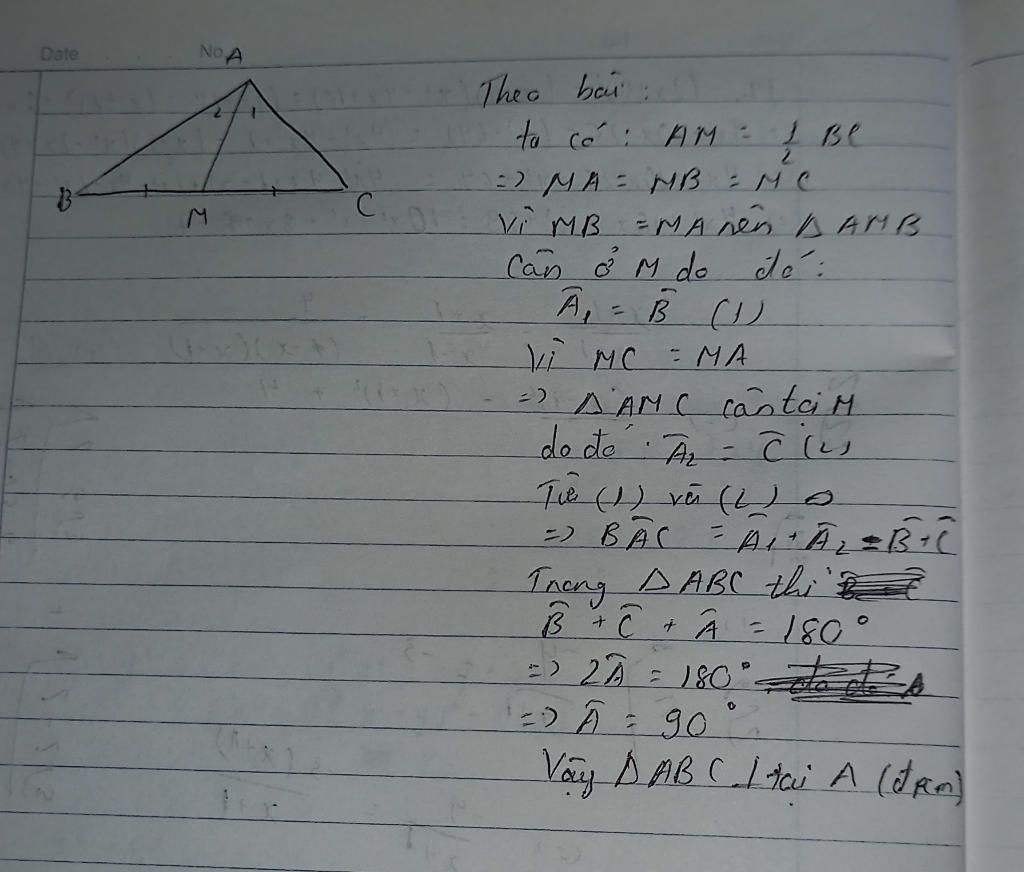 Date No
A
2 1
B M C
Theo bài :
ta có : AM = 1/2 BC
=> MA = MB = MC
Vì MB = MA nên Δ AMB
Cân ở M do đó :
Â₁ = B̂ (1)
Vì MC = MA
=> Δ AMC cân tại M
do đó : Â₂ = Ĉ (2)
Từ (1) và (2)
=> BÂC = Â₁ + Â₂ = B̂ + Ĉ
Trong Δ ABC thì
B̂ + Ĉ + Â = 180°
=> 2Â = 180°
=> Â = 90°
Vậy Δ ABC ⊥ tại A (đpcm)